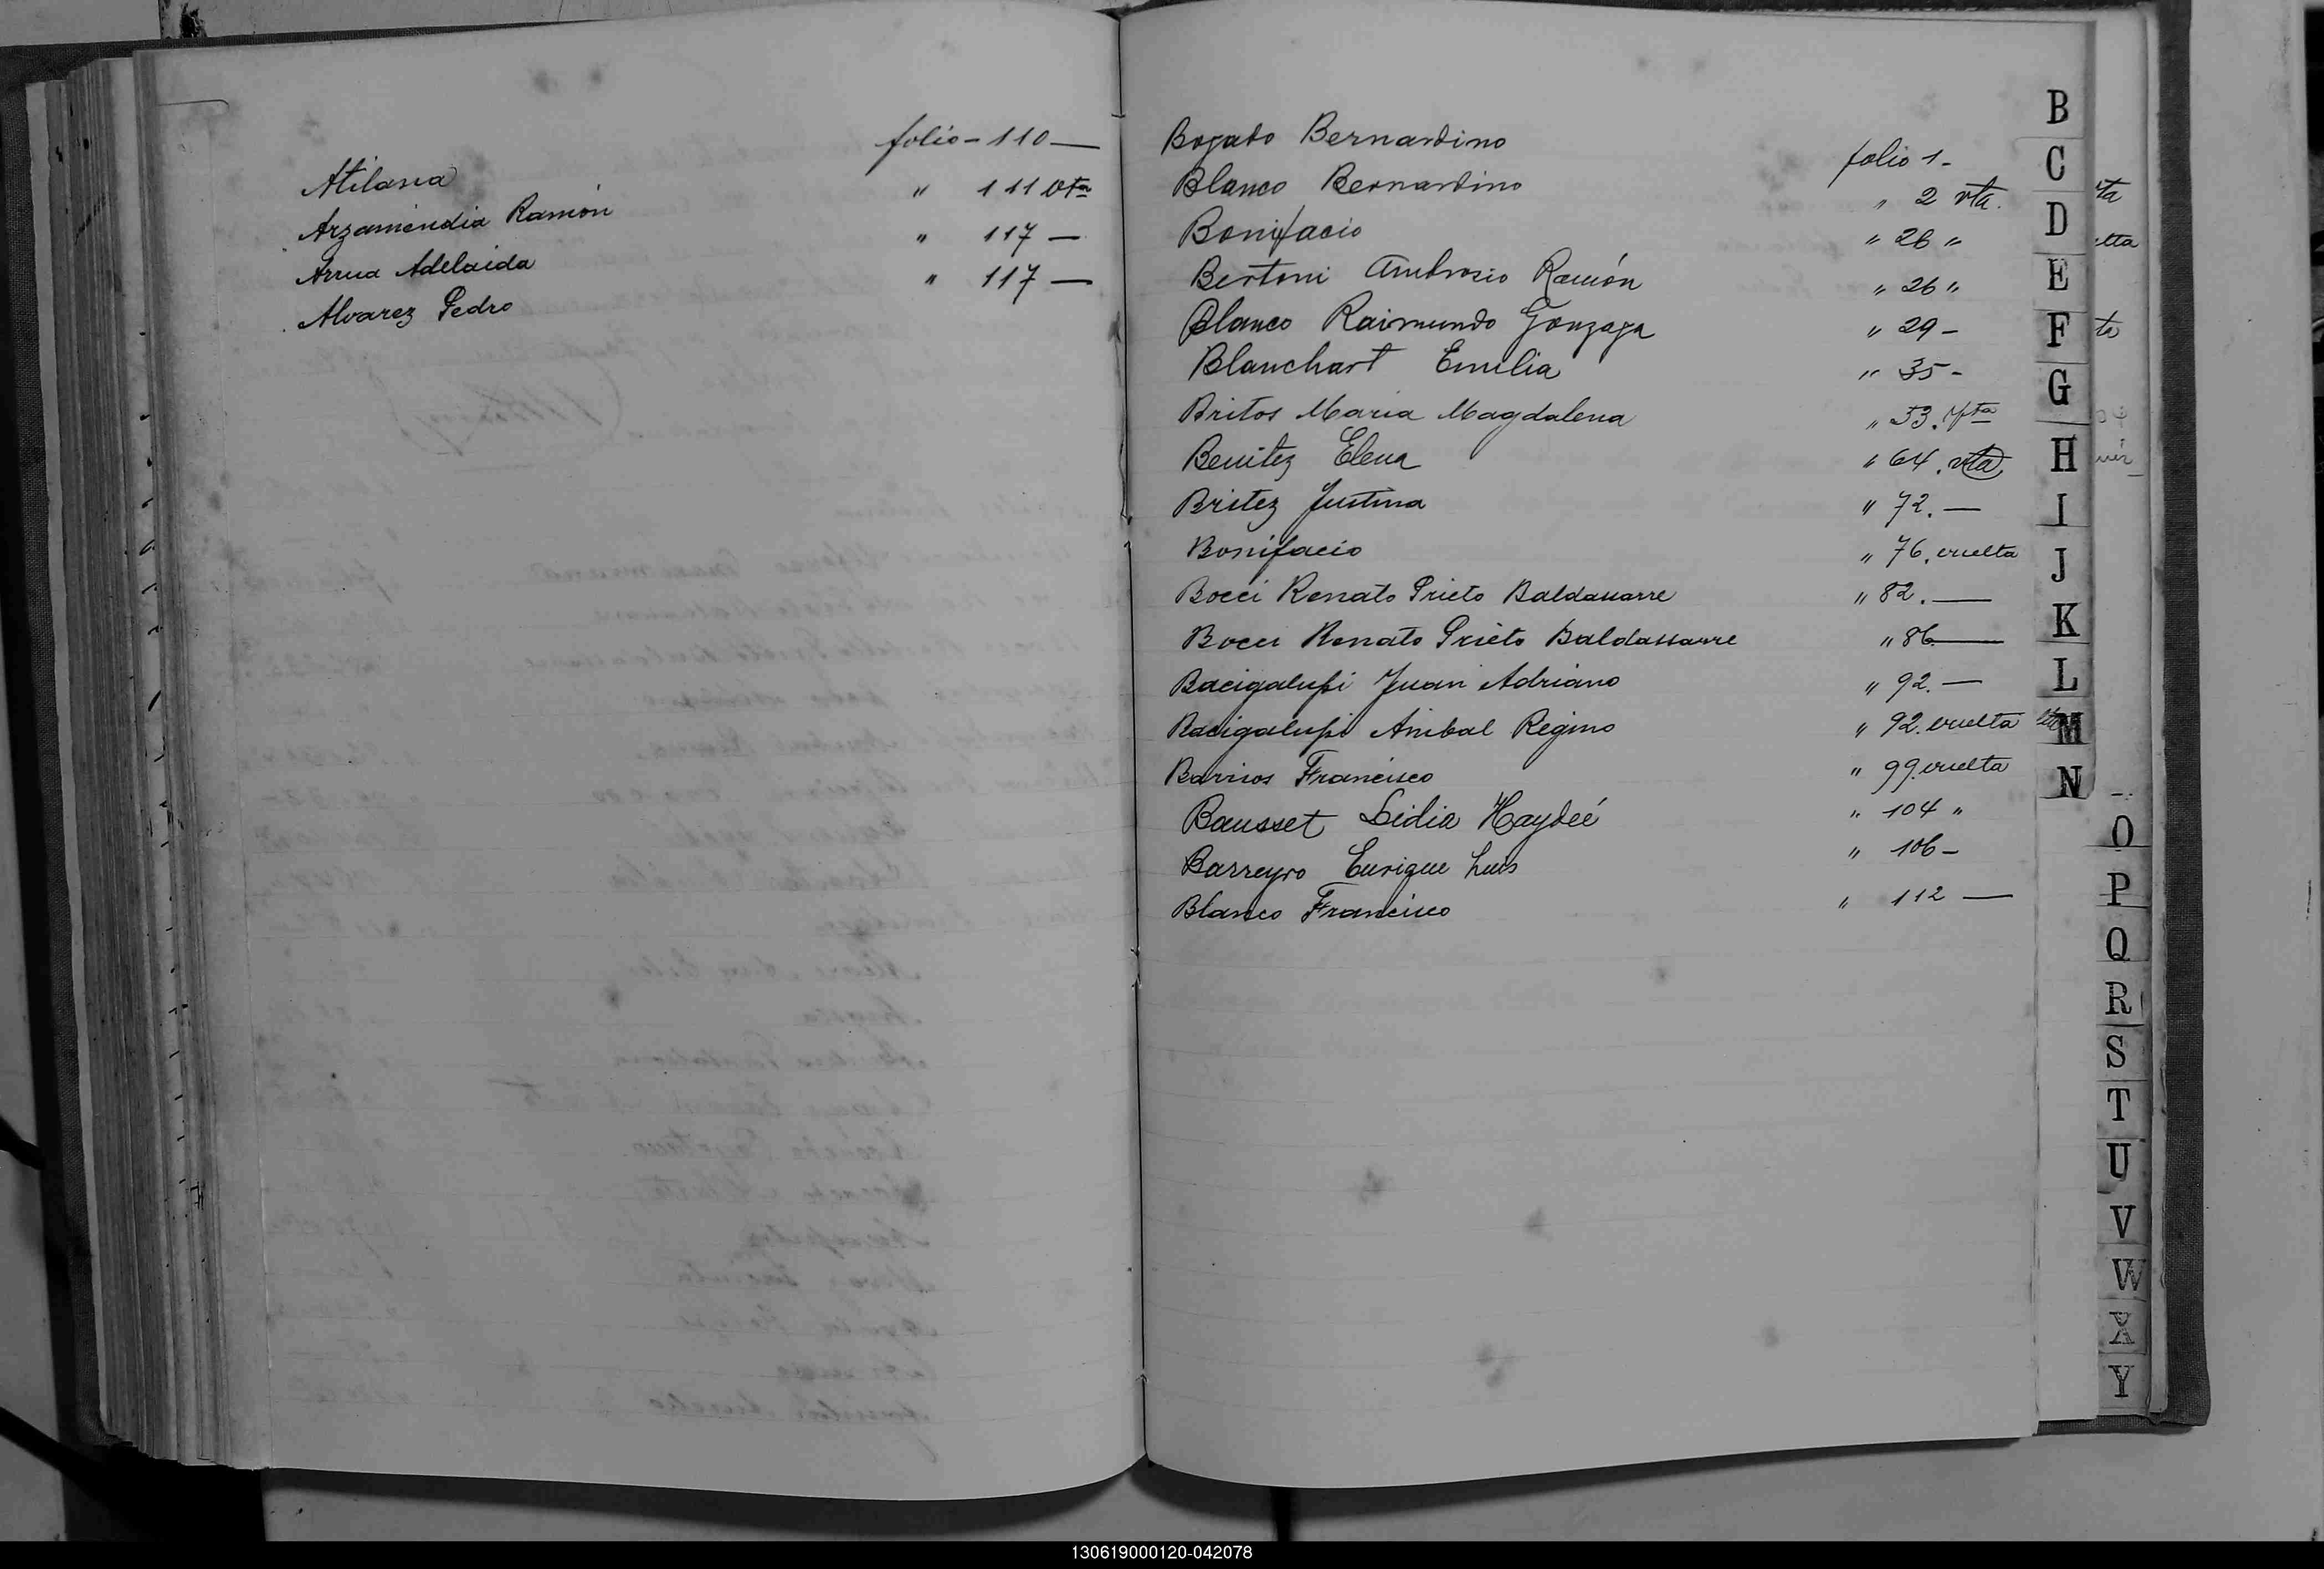 Atilana folio - 110 —
Arzamendia Ramón " 111 vta
Arrua Adelaida " 117 —
Alvarez Pedro " 117 —
Bogado Bernardino folio 1 -
Blanco Bernardino " 2 vta.
Bonifacio " 26 "
Bertoni Ambrosio Ramón " 26 "
Blanco Raimundo Gonzaga " 29 -
Blanchart Emilia " 35 -
Britos Maria Magdalena " 53. Vta
Benitez Elena " 64. vta
Britez Justina " 72. —
Bonifacio " 76. vuelta
Bocci Renato Prieto Baldassarre " 82. —
Bocci Renato Prieto Baldassarre " 86 —
Bacigalupi Juan Adriano " 92. —
Bacigalupi Anibal Regino " 92. vuelta
Barrios Francisco " 99. vuelta
Bausset Lidia Haydeé " 104 "
Barreyro Enrique Luis " 106 -
Blanco Francisco " 112 —
B
C
D
E
F
G
H
I
J
K
L
M
N
O
P
Q
R
S
T
U
V
W
X
Y
130619000120-042078